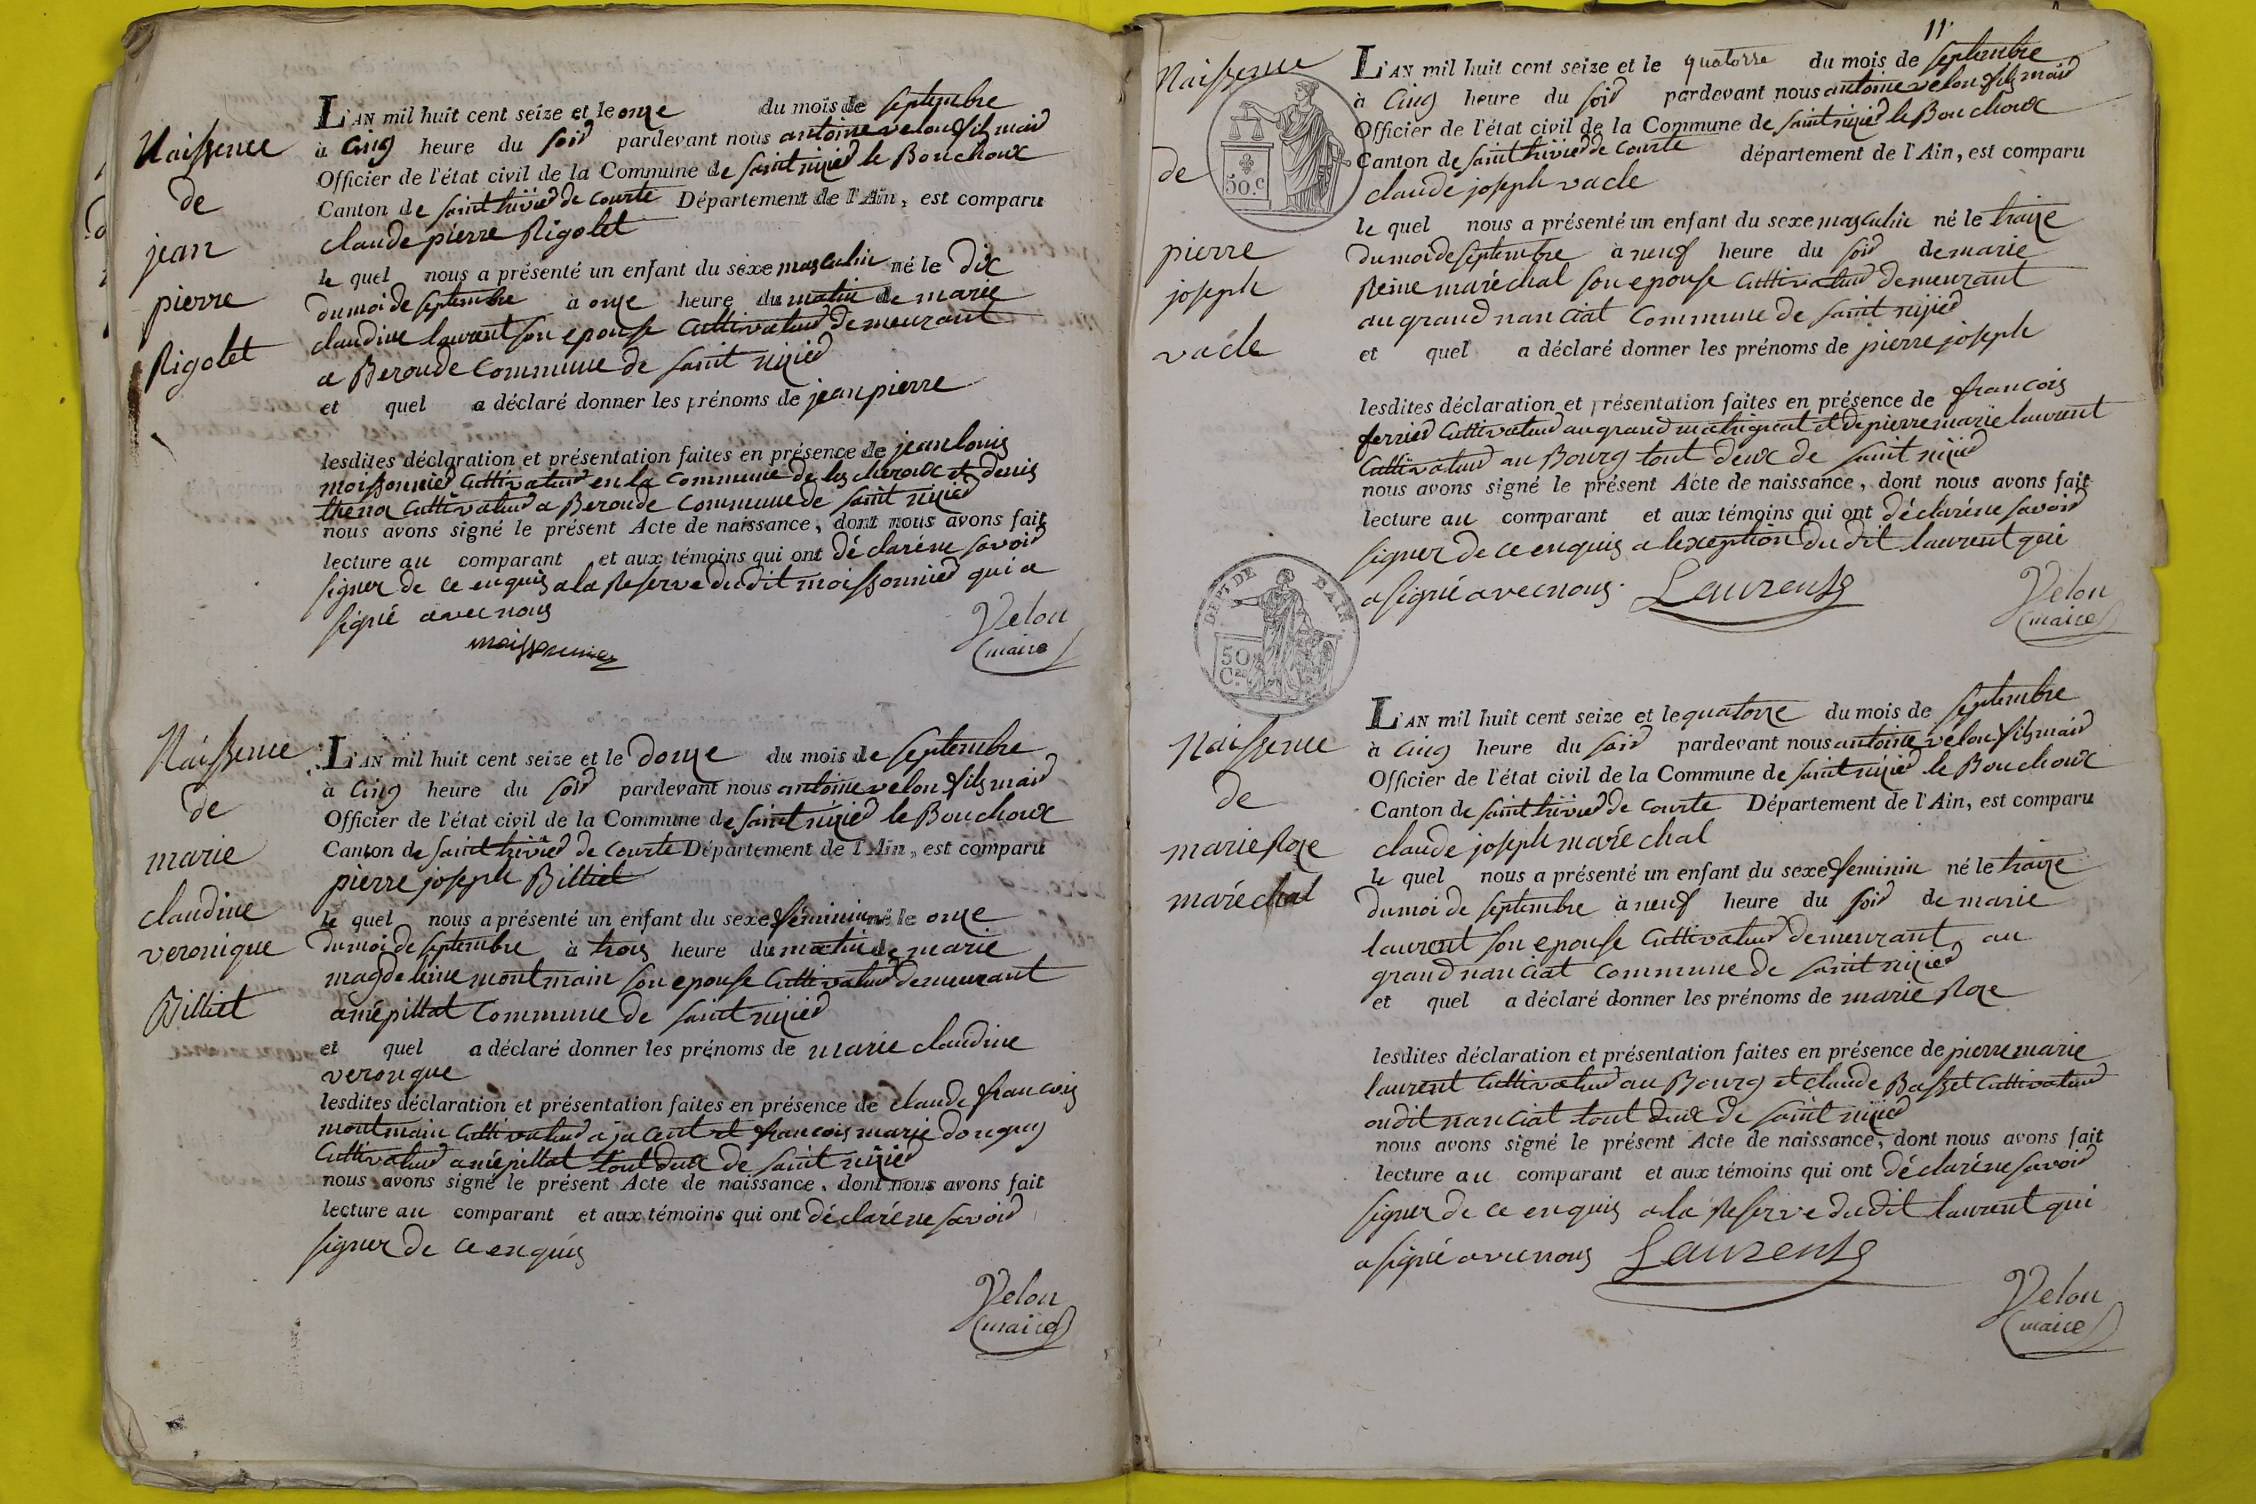 Naissence
de
jean
pierre
Rigolet
L'AN mil huit cent seize et le onze du mois de septembre
à cinq heure du soir pardevant nous antoine velon fils mair
Officier de l'état civil de la Commune de saint nizier le Bouchoux
Canton de saint trivier de courte Département de l'Ain, est comparu
claude pierre Rigolet
le quel nous a présenté un enfant du sexe masculin né le dix
du moi de septembre à onze heure du matin de marie
claudine laurent son epouse cultivateur demeurant
a Beroude commune de saint nizier
et quel a déclaré donner les prénoms de jean pierre
lesdites déclaration et présentation faites en présence de jean louis
moissonnier cultivateur en la commune de les cheroux et denis
thenoz cultivateur a Beroude commune de saint nizier
nous avons signé le présent Acte de naissance, dont nous avons fait
lecture au comparant et aux témoins qui ont déclaré ne savoir
signer de ce enquis a la Reserve du dit moissonnier qui a
signé avec nous
moissonnier
Velon
maire
Naissence
de
marie
claudine
veronique
Billiet
L'AN mil huit cent seize et le douze du mois de septembre
à cinq heure du soir pardevant nous antoine velon fils mair
Officier de l'état civil de la Commune de saint nizier le Bouchoux
Canton de saint trivier de courte Département de l'Ain, est comparu
pierre joseph Billiet
le quel nous a présenté un enfant du sexe feminin né le onze
du moi de septembre à trois heure du matin de marie
magdeleine montmain son epouse cultivateur demeurant
a niépillat commune de saint nizier
et quel a déclaré donner les prénoms de marie claudine
veronque
lesdites déclaration et présentation faites en présence de claude francois
montmain cultivateur a jacent et francois marie donguy
cultivateur a niépillat tout deux de saint nizier
nous avons signé le présent Acte de naissance, dont nous avons fait
lecture au comparant et aux témoins qui ont déclaré ne savoir
signer de ce enquis
Velon
maire
11
Naissence
de
pierre
joseph
vacle
50.c
L'AN mil huit cent seize et le quatorze du mois de septembre
à cinq heure du soir pardevant nous antoine velon fils mair
Officier de l'état civil de la Commune de saint nizier le Bouchoux
Canton de saint trivier de courte département de l'Ain, est comparu
claude joseph vacle
le quel nous a présenté un enfant du sexe masculin né le traize
du moi de septembre à neuf heure du soir de marie
Reine maréchal son epouse cultivateur demeurant
au grand nanciat commune de saint nizier
et quel a déclaré donner les prénoms de pierre joseph
lesdites déclaration et présentation faites en présence de francois
ferrier cultivateur au grand matrignat et de pierre marie laurent
cultivateur au Bourg tout deux de saint nizier
nous avons signé le présent Acte de naissance, dont nous avons fait
lecture au comparant et aux témoins qui ont déclaré ne savoir
signer de ce enquis a lexception du dit laurent qui
a signé avec nous. Laurent
Velon
maire
DEPT. DE L'AIN.
50
C.es
Naissence
de
marie Roze
maréchal
L'AN mil huit cent seize et le quatorze du mois de septembre
à cinq heure du soir pardevant nous antoine velon fils mair
Officier de l'état civil de la Commune de saint nizier le Bouchoux
Canton de saint trivier de courte Département de l'Ain, est comparu
claude joseph maréchal
le quel nous a présenté un enfant du sexe feminin né le traize
du moi de septembre à neuf heure du soir de marie
laurent son epouse cultivateur demeurant au
grand nanciat commune de saint nizier
et quel a déclaré donner les prénoms de marie Roze
lesdites déclaration et présentation faites en présence de pierre marie
laurent cultivateur au Bourg et claude Basset cultivateur
au dit nanciat tout deux de saint nizier
nous avons signé le présent Acte de naissance, dont nous avons fait
lecture au comparant et aux témoins qui ont déclaré ne savoir
signer de ce enquis a la Reserve du dit laurent qui
a signé avec nous Laurent
Velon
maire